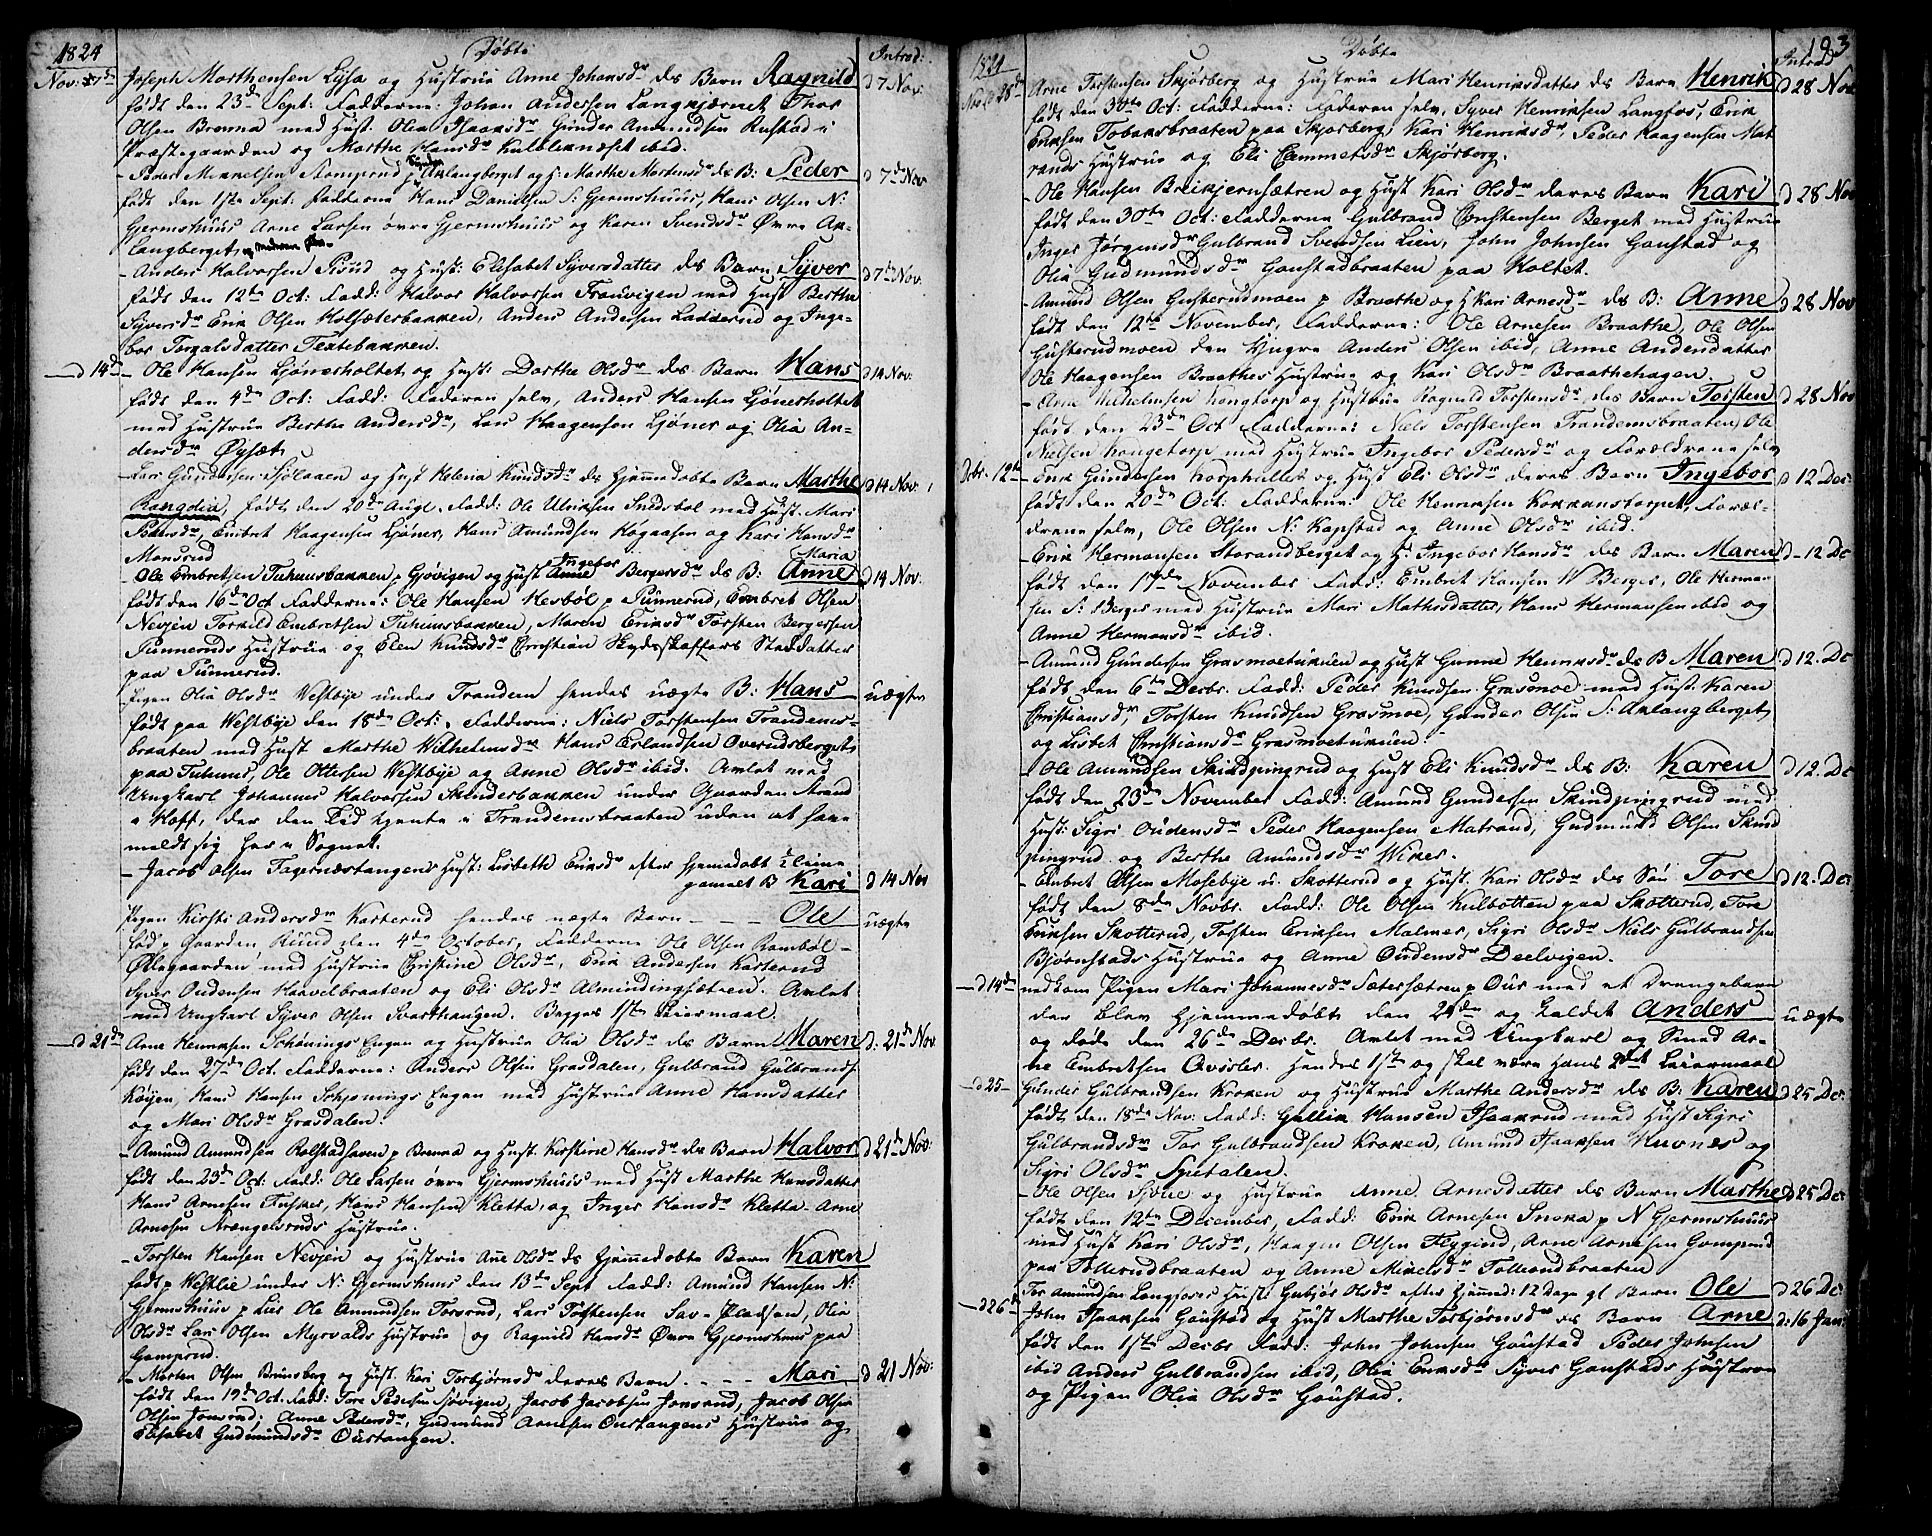 1824
Døbte
Introd:
Nov: 7de Joseph Marthensen Lysa og Hustrue Anne Johansdr des Barn Ragnild d 7 Nov:
født den 23de Sept: Fadderne: Johan Andersen Langkjernet Thor
Olsen Brenna med Hust. Olia Isaaksdr Gunder Amundsen Rustad i
Præstegaarden og Marthe Hansdr Kulbleknæset ibid.
- Peder Mikkelsen Stomprud p Søndre Aklangberget og H: Marthe Mortensdr des B: Peder d 7de Nov
født den 1ste Sept: Fadderne Hans Danielsen S: Gjermshuus, Hans Olsen N:
Gjermshuus Arne Larsen øvre Gjermshuus og Karen Svendsdr Øvre Ak-
langberget
- Anders Halvorsen Pisud og Hust: Elisabet Syversdatter des Barn Syver d 7de Nov:
født den 12te Oct: Fadd: Halvor Halvorsen Trautvigen med Hust Berthe
Syversdr Erik Olsen Holsæterbakken, Anders Andersen Ladderud og Inge-
bor Torgalsdatter Textebakken.
d 14de - Ole Hansen Ljønerholtet og Hust: Dorthe Olsdr des Barn Hans d 14 Nov:
født den 4de Oct: Fadd: Faderen selv, Anders Hansen Ljønerholtet
med Hustrue Berthe Andersdr, Lars Haagensen Ljøner og Olia An-
dersdr Øysæt
Lars Gundersen Sjølaaen og Hust Helena Knudsdr des Hjemmedøbte Barn Marthe d 14 Nov:
Rangdia, født den 20de Augl. Fadd: Ole Ulriksen Snedsbøl med Hust. Mari
Pedersdr, Embret Haagensen Ljøner, Hans Amundsen Høgaasen og Kari Hansdr
Monsrud
- Ole Embretsen Tuhuusbakken p Gjøvigen og Hust Ingebor Bergersdr des B: Anne Maria d 14 Nov:
født den 16de Oct Fadderne: Ole Hansen Hesbøl p Tunnerud, Embret Olsen
Nevjen Torkild Embretsen Tuhuusbakken, Maren Eriksdr Torsten Bergersen
Tunneruds Hustrue og Elen Knudsdr Christian Skydsskaffers Steddatter
paa Tunnerud.
Pigen Olia Olsdr Westbye under Trandem hendes uægte B: Hans uægte
født paa Westbye den 18de Oct: Fadderne: Niels Torstensen Trandems-
braaten med Hust Marthe Wilhelmsdr Hans Erlandsen Overudsberget
paa Tuhuus, Ole Ottersen Westbye og Anne Olsdr ibid. Avlet med
Ungkarl Johannes Halvorsen Skinderbakken under Gaarden Strand
i Hoff, der den Tid tjente i Trandemsbraaten uden at have
meldt sig her i Sognet.
- Jacob Olsen Fagernæstangens Hust: Lisbethe Eriksdr efter hjemmedøbt 1/2 Time
gamelt B Kari d 14 Nov
Pigen Kirsti Andersdr Karterud hendes uægte Barn - - - Ole uægte
fød p Gaarden Ruud den 4de October, Fadderne Ole Olsen Rambøl-
Ødegaarden med Hustrue Christine Olsdr, Erik Andersen Karterud
Syver Oudensen Haavelbraaten og Eli Olsdr Almindingsætren. Avlet
med Ungkarl Syver Olsen Svarthaugen. Begges 1ste Leiermaal.
d 21de Arne Henriksen Schønings Engen og Hustrue Olia Olsdr des Barn Maren d. 21de Nov
født den 27de Oct: Fadderne: Anders Olsen Grasdalen, Gulbrand Gulbrands.
Køyen, Hans Hansen Schjønings Engen med Hustrue Anne Hansdatter
og Mari Olsdr Grasdalen.
- Amund Amundsen Rolfstadhaven p Brenna og Hust. Kirstine Hansdr des Barn Halvor d 21de Nov:
født den 23de Oct: Fadd: Ole Larsen øvre Gjermshuus med Hust Marthe Hansdatter
Hans Arnesen Fusker, Hans Hansen Kletta, og Inger Hansdr Kletta Arne
Arnesen Vrængelsruds Hustrue.
- Torsten Hansen Nevjen og Hustrue Ane Olsdr des Hjemmedøbte Barn Karen
født p Westlie under N: Gjermshuus den 13de Sept Fadd: Amund Hansen N:
Gjermshuus p Lier Ole Amundsen Torsrud, Lars Torstensen Sav-Pladsen, Olia
Olsdr Lars Olsen Myrvolds Hustrue og Ragnild Hansdr Øvre Gjermshuus paa
Gomprud.
- Morten Olsen Brunsberg og Hust. Kari Torbjørnsdr deres Barn. - - - Mari d 21 Nov:
født den 19de Oct. Fadd: Tore Pedersen Sjøvigen, Jacob Jacobsen Jonsrud, Jacob Olsen
Olsen Jonsrud, Anne Pedersdr, Gudmund Arnesen Oustangens Hustrue og
Elisabet Gudmundsdr Oustangen.
1824
Døbte
193
Introd
Nov: 28de Arne Torstensen Skjørberg og Hustrue Mari Henriksdatter des Barn Henrik d 28 Nov
født den 30te Oct: Fadderne: Faderen selv, Syver Henriksen Langfos, Erik
Eriksen Tobaksbraaten paa Skjørberg, Kari Henriksdr, Peder Haagensen Mat
rands Hustrue og Eli Emmetsdr Skjørberg.
- Ole Hansen Breikjernsætren og Hust Kari Olsdr deres Barn Kari d 28 Nov
født den 30te Oct: Fadderne Gulbrand Torstensen Berget med Hustrue
Inger Jørgensdr Gulbrand Svendsen Lien, John Johnsen Gaustad og
Olia Gudmundsdr Gaustadbraaten paa Holtet.
- Amund Olsen Gusterudmoen p Braathe og H Kari Arnesdr des B: Anne d 28 Nov
født den 12te November, Fadderne: Ole Arnesen Braathe, Ole Olsen
Gusterudmoen den Yngre Anders Olsen ibid, Anne Andersdatter
Ole Haagensen Braathes Hustrue og Kari Olsdr Braathehagen.
- Arne Wilhelmsen Kongtorp og Hustrue Ragnild Torstensdr, des Barn Torsten d 28 Nov
født den 23de Oct Fadderne: Niels Torstensen Trandemsbraaten, Ole
Nielsen Kongetorp med Hustrue Ingebor Pedersdr og Forældrene selv
Decbr. 12te Erik Gundersen Korphullet og Hust Eli Olsdr deres Barn Ingebor d 12 Dec:
født den 20de Oct: Fadderne: Ole Henriksen Kokkenstorpet, Foræl-
drene selv, Ole Olsen N: Kapstad og Anne Olsdr ibid.
- Erik Hermansen Storandberget og H: Ingebor Hansdr des Barn Maren d - 12 Dc
født den 17de November Fadd: Embret Hansen W Berger, Ole Herman-
sen S: Berger med Hustrue Mari Mathisdatter, Hans Hermansen ibid og
Anne Hermansdr ibid.
- Amund Gundersen Grasmoetukuen og Hust Gunne Henriksdr des B Maren d 12. Dc
født den 6te Decbr. Fadd: Peder Knudsen Grasmoe med Hust. Karen
Christiansdr, Torsten Knudsen Grasmoe, Gunder Olsen S: Aklangberget
og Lisbet Christiansdr Grasmoetukuen.
- Ole Amundsen Skindpungrud og Hust Eli Knudsdr des B: Karen d 12. Dc
født den 23de November Fadd: Amund Gundersen Skindpungrud med
Hust: Sigri Oudensdr Peder Haagensen Matrand, Gudmund Olsen Skind
pungrud og Berthe Amundsdr Wiker.
- Embret Olsen Mosebye u. Skotterud og Hust. Kari Olsdr des Søn Tore d 12. Dec
født den 8de Novbr. Fadd: Ole Olsen Kulbotten paa Skotterud, Tore
Eriksen Skotterud, Torsten Eriksen Malmer, Sigri Olsdr Niels Gulbrandsen
Bjørnstads Hustrue og Anne Oudensdr Deelvigen.
- d 14de nedkom Pigen Mari Johannesdr Sætersætren p Ous med et Drengebarn
der blev hjemmedøbte den 24de og kaldet Anders uægte
og døde den 26de Decbr. Avlet med Ungkarl og Smed Ar-
ne Embretsen Qvisler. Hendes 1ste og skal være Hans 2det Leiermaal
- d 25 - Gunder Gulbrandsen Kroken og Hustrue Marthe Andersdr des B: Karen d 25 Dec.
født den 18de Nov: Fadd: Gullik Hansen Isaakrud med Hust Sigri
Gulbrandsdr Tor Gulbrandsen Kroken, Amund Isaaksen Huvnes og
Sigri Olsdr Spetalen.
- Ole Olsen Sjølie og Hustrue Anne Arnesdatter des Barn Marthe d 25 Dec
født den 12te December, Fadd: Erik Arnesen Snoka p N Gjermshuus
med Hust Kari Olsdr, Haagen Olsen Flygind, Arne Arnesen Gomprud
paa Tollerudbraaten og Anne Mikelsdr Tollerudbraaten
Tor Amundsen Langfoses Hust: Gubjør Olsdr efter Hjemmed: 12 Dage gl Barn Ole d 26 Dec
- d 26de John Isaaksen Gaustad og Hust Marthe Torbjørnsdr des Barn Arne d: 16 Jan:
født den 1ste Decbr Fadd: John Johnsen Gaustad Peder Johnsen
ibid Anders Gulbrandsen ibid, Olia Eriksdr Syver Gaustads Hustrue
og Pigen Olia Olsdr Gaustad.